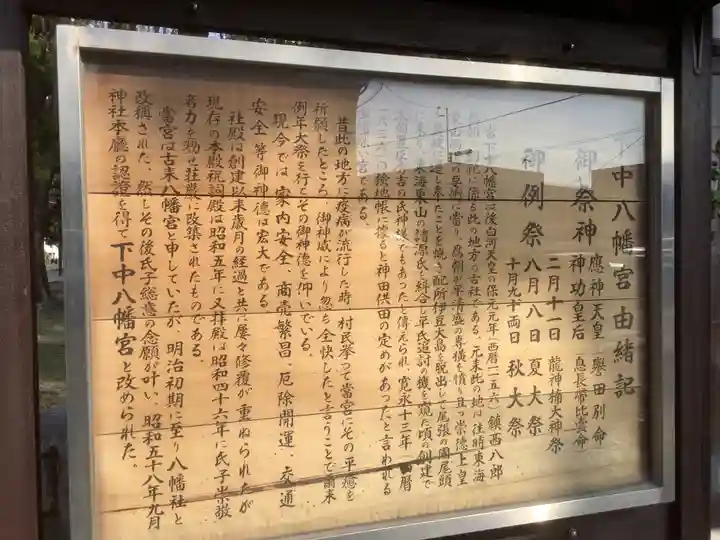 下中八幡宮由緒記
御祭神 應神天皇 譽田別命
神功皇后 息長帶比賣命
二月十一日 龍神補大神祭
御例祭 八月八日 夏大祭
十月九十両日 秋大祭
当下中八幡宮は後白河天皇の保元元年(西暦一一五六)鎮西八郎
此の地方の古社である。元来此の地は往時東海
の要衝に當り、為朝が平清盛の専横を憤り且つ崇徳上皇
に遷し奉たことを慨き配所伊豆大島を脱出して尾張の國尾頭
に来り東海東山の諸源氏を糾合し平氏追討の機を窺た頃の創建で
の氏神様でもあったと傳えられ寛永十三年(西暦
一六三六)の検地帳に據ると神田供田の定めがあったと言われる
古い宮である。
昔此の地方に疫病が流行した時、村民挙って當宮にその平癒を
祈願したところ、御神威により忽ち全快したと言うことで爾来
例年大祭を行てその御神徳を仰いでいる。
現今では家内安全、商売繁昌、厄除開運、交通
安全等御神徳は宏大である。
社殿は創建以来歳月の経過と共に屡々修覆が重ねられたが
現存の本殿祝詞殿は昭和五年に又拝殿は昭和四十六年に氏子崇敬
者力を勠せ荘厳に改築されたものである。
當宮は古来八幡宮と申していたが、明治初期に至り八幡社と
改稱された、然しその後氏子総意の念願が叶い、昭和五十八年九月
神社本廳の認證を得て下中八幡宮と改められた。